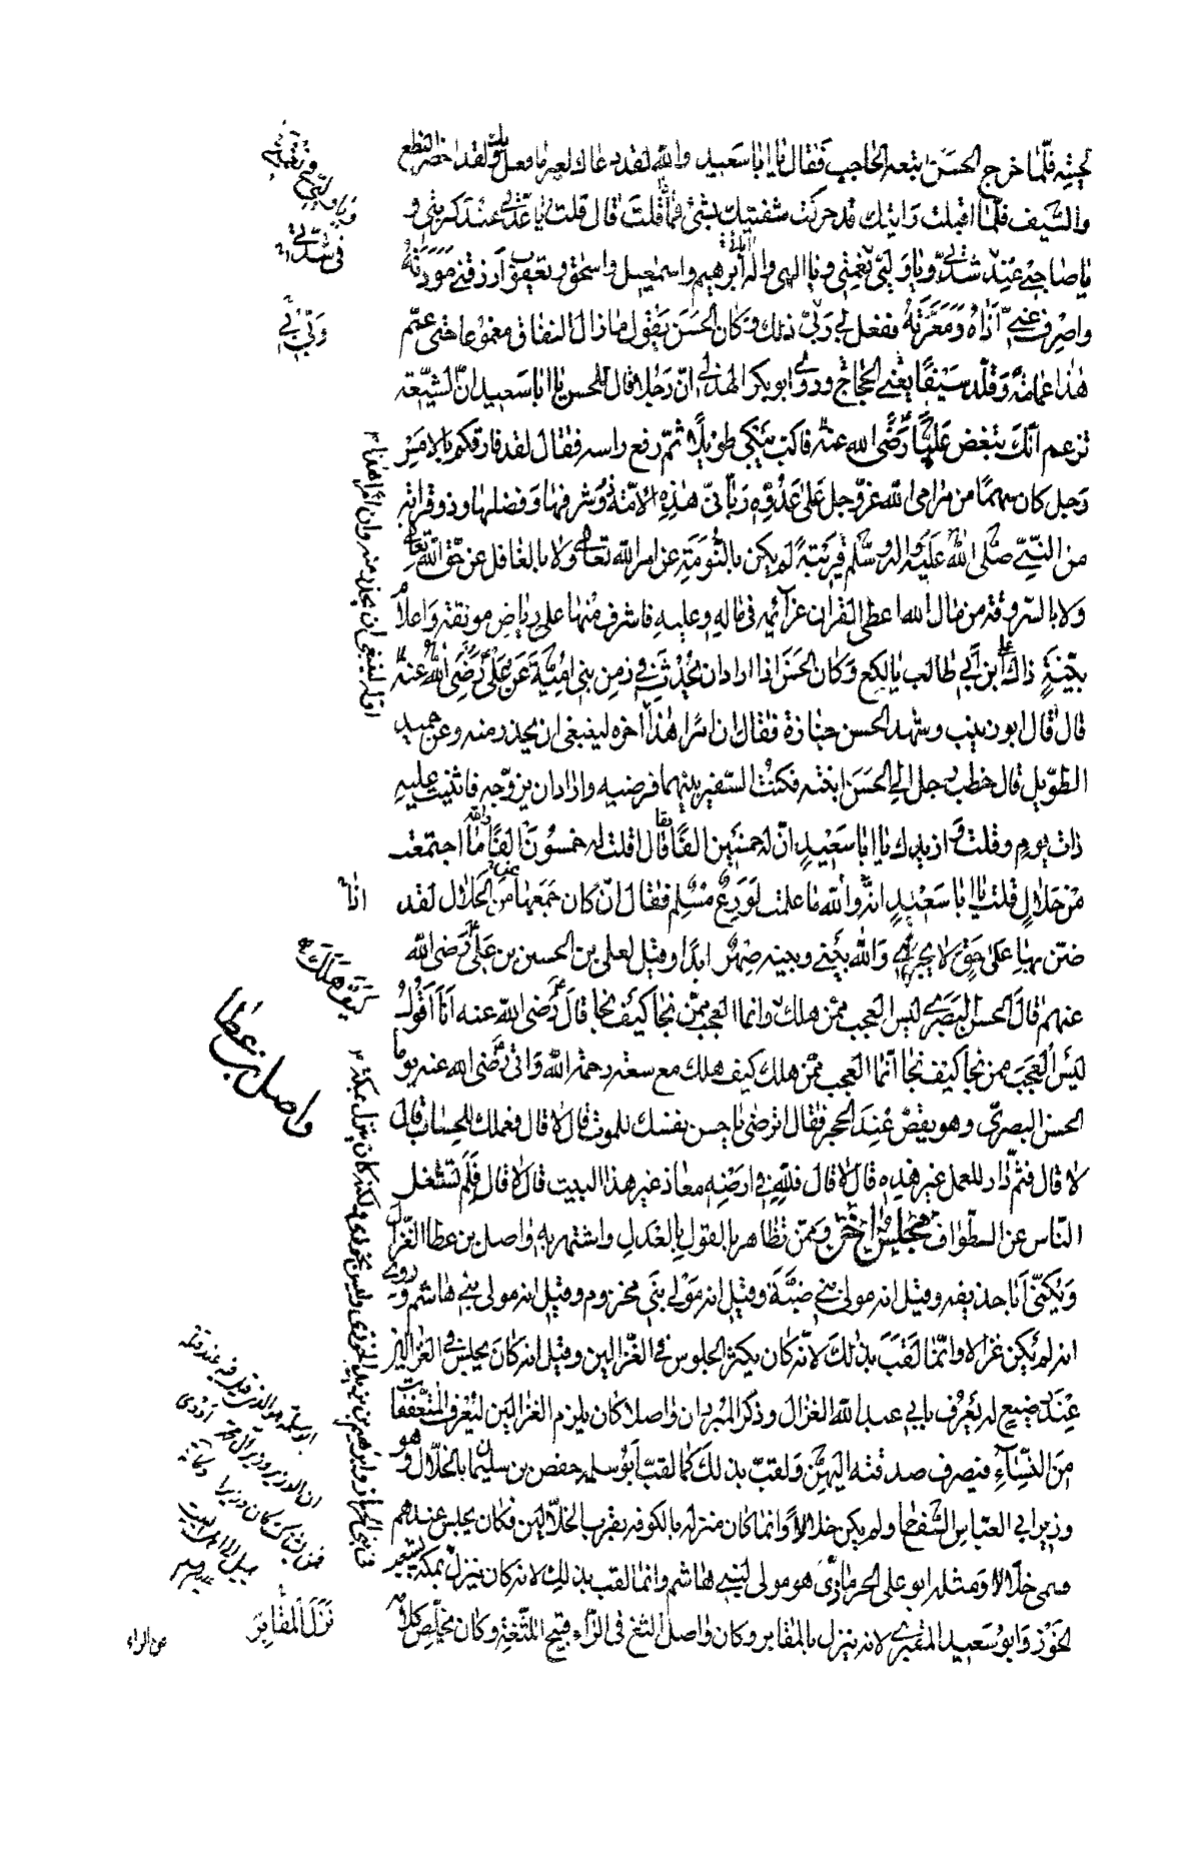 لحيته فلما خرج الحسن اتبعه الحاجب فقال يا ابا سعيد والله لقد دعاك لغير ما فعل بك ولقد احضر النطع
والسيف فلما اقبلت رايتك قد حركت شفتيك بشئ فما قلت قال قلت يا عدتي عند كربتي و
يا صاحبي عند شدتي ويا وليي في نعمتي ويا الهي واله آبائي ابرهيم واسمعيل واسحق ويعقوب ارزقني مودته
واصرف عني اذاه ومعرته ففعل بي ربي ذلك وكان الحسن يقول ما زال النفاق مقموعا حتى عمم
هذا عمامة وقلد سيفا يعني الحجاج وروى ابو بكر الهذلي ان رجلا قال للحسن يا ابا سعيد ان الشيعة
تزعم انك تبغض عليا رضي الله عنه فاكب يبكي طويلا ثم رفع راسه فقال لقد فارقكم بالامس
رجل كان سهما من مرامي الله عز وجل على عدوه رباني هذه الامة وشرفها وفضلها وذو قرابة
من النبي صلى الله عليه واله وسلم قريبة لم يكن بالنومة عن امر الله تعالى ولا بالغافل عن حق الله تعالى
ولا بالسروقة من مال الله اعطى القران عزائمه في ماله وعليه فاشرف منها على رياض مونقة واعلام
بينة ذاك علي ابن ابي طالب يا لكع وكان الحسن اذا اراد ان يحدث في زمن بني امية عن علي رضي الله عنه
قال قال ابو زينب وشهد الحسن جنازة فقال ان امرا هذا اخره لينبغي ان يحذر منه وعن حميد
الطويل قال خطب رجل الى الحسن ابنته فكنت السفير بينهما فرضيه واراد ان يزوجه فاثنيت عليه
ذات يوم وقلت وازيدك يا ابا سعيد ان له خمسين الفا فقال قلت له خمسون الفا ما والله اجتمعت
من حلال قلت يا ابا سعيد انه والله ما علمت لورع مسلم فقال ان كان جمعها من الحلال لقد
ضن بها على حق لا يجري والله بيني وبينه صهر ابدا وقيل لعلي بن الحسين بن علي رضي الله
عنهم قال الحسن البصري ليس العجب ممن هلك وانما العجب ممن نجا كيف نجا قال رضي الله عنه انا اقول
ليس العجب ممن نجا كيف نجا انما العجب ممن هلك كيف هلك مع سعة رحمة الله واتى رضي الله عنه يوما
الحسن البصري وهو يقص عند الحجر فقال اترضى يا حسن نفسك للموت قال لا قال فعملك للحساب قال
لا قال فثم دار للعمل غير هذه قال لا قال فلله في ارضه معاذ غير هذا البيت قال لا قال فلم تشغل
الناس عن الطواف مجلس اخر وممن تظاهر بالقول بالعدل واشتهر به واصل بن عطا الغزال
ويكنى ابا حذيفه وقيل انه مولى بني ضبة وقيل انه مولى بني مخزوم وقيل انه مولى بني هاشم وروى
انه لم يكن غزالا وانما لقب بذلك لانه كان يكثر الجلوس في الغزالين وقيل انه كان يجلس في الغزالين
عند رضيع له يعرف بابي عبد الله الغزال وذكر المبرد ان واصلا كان يلزم الغزالين ليعرف المتعففات
من النساء فيصرف صدقته اليهن ولقب بذلك كما لقب ابو سلمه حفص بن سليمان بالخلال وهو
وزير ابي العباس السفاح ولم يكن خلالا وانما كان منزله بالكوفه بقرب الخلالين فكان يجلس عندهم
فسمى خلالا ومثله ابو علي الحرمازي هو مولى لبني هاشم وانما لقب بذلك لانه كان ينزل بمكة شعب
الخوز وابو سعيد المقبري لانه نزل بالمقابر وكان واصل الثغ في الراء قبيح اللثغة وكان يخلص كلامه
ويا وليي في نعمتي
في شدتي
ربي بي
اوله لينبغي ان يحذر منه وان امرا هذا
انا
واصل بن عطا
نزل المقابر
من الراء